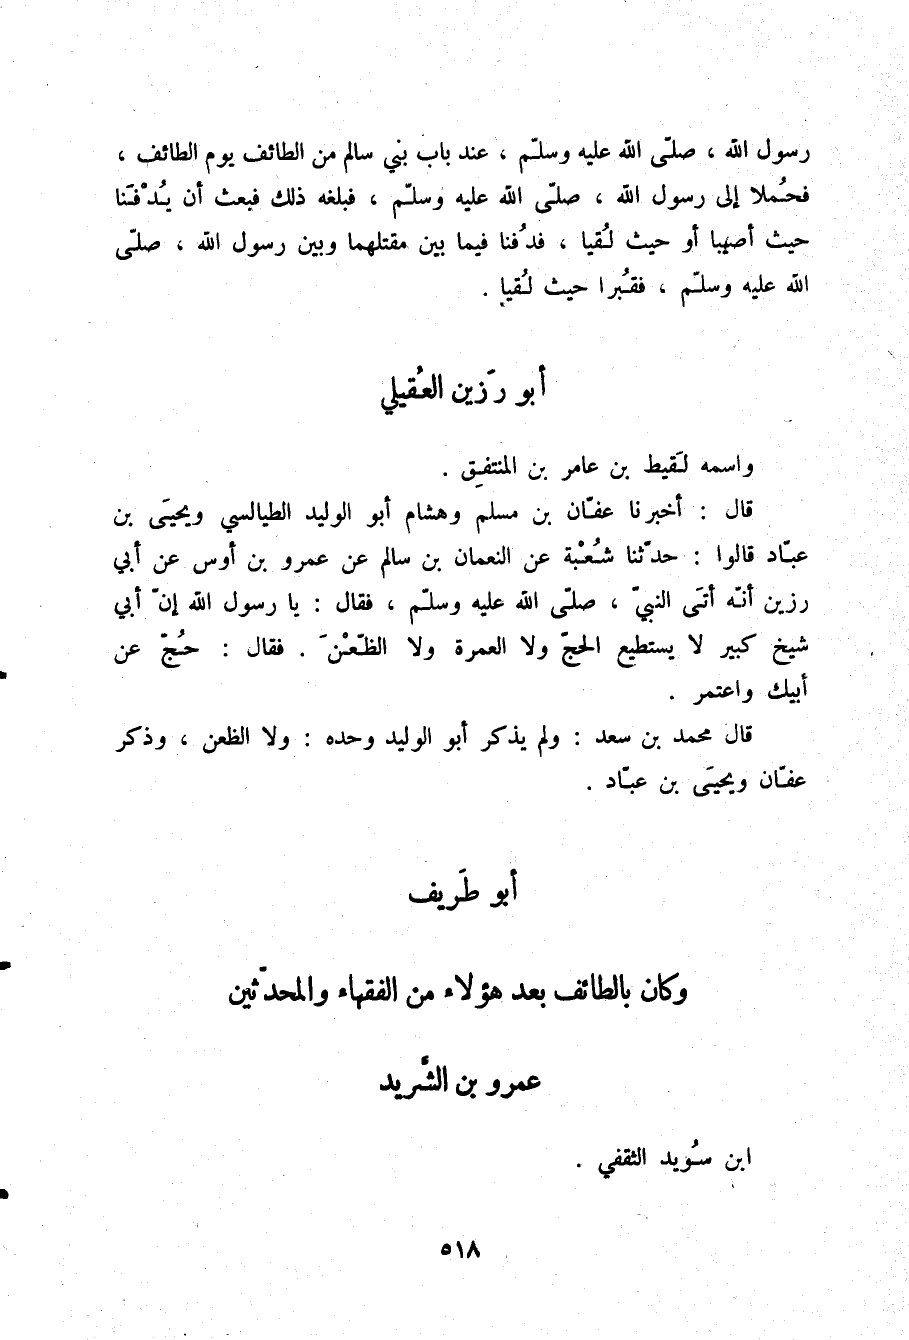 رسول الله ، صلّى الله عليه وسلّم ، عند باب بني سالم من الطائف يوم الطائف ،
فحُملا إلى رسول الله ، صلّى الله عليه وسلّم ، فبلغه ذلك فبعث أن يُدْفَنا
حيث أصيبا أو حيث لُقيا ، فدُفنا فيما بين مقتلهما وبين رسول الله ، صلّى
الله عليه وسلّم ، فقُبرا حيث لُقيا .
أبو رَزين العُقيلي
واسمه لَقيط بن عامر بن المنتفِق .
قال : أخبرنا عفّان بن مسلم وهشام أبو الوليد الطيالسي ويحيَى بن
عبّاد قالوا : حدّثنا شُعْبة عن النعمان بن سالم عن عمرو بن أوس عن أبي
رزين أنّه أتَى النبيّ ، صلّى الله عليه وسلّم ، فقال : يا رسول الله إنّ أبي
شيخ كبير لا يستطيع الحجّ ولا العمرة ولا الظّعْنَ . فقال : حُجّ عن
أبيك واعتمر .
قال محمد بن سعد : ولم يذكر أبو الوليد وحده : ولا الظعن ، وذكر
عفّان ويحيَى بن عبّاد .
أبو طَريف
وكان بالطائف بعد هؤلاء من الفقهاء والمحدّثين
عمرو بن الشَّريد
ابن سُويد الثقفي .
٥١٨